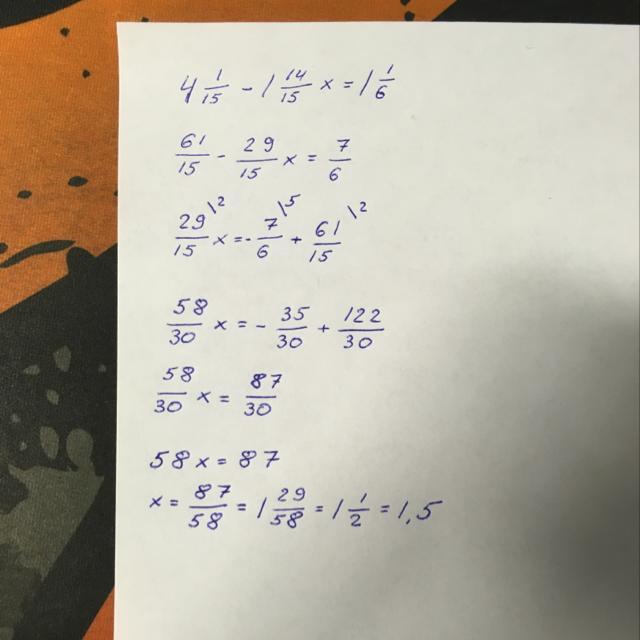 4 1/15 - 1 14/15 x = 1 1/6
61/15 - 29/15 x = 7/6
29/15 \2 x = - 7/6 \5 + 61/15 \2
58/30 x = - 35/30 + 122/30
58/30 x = 87/30
58x = 87
x = 87/58 = 1 29/58 = 1 1/2 = 1,5